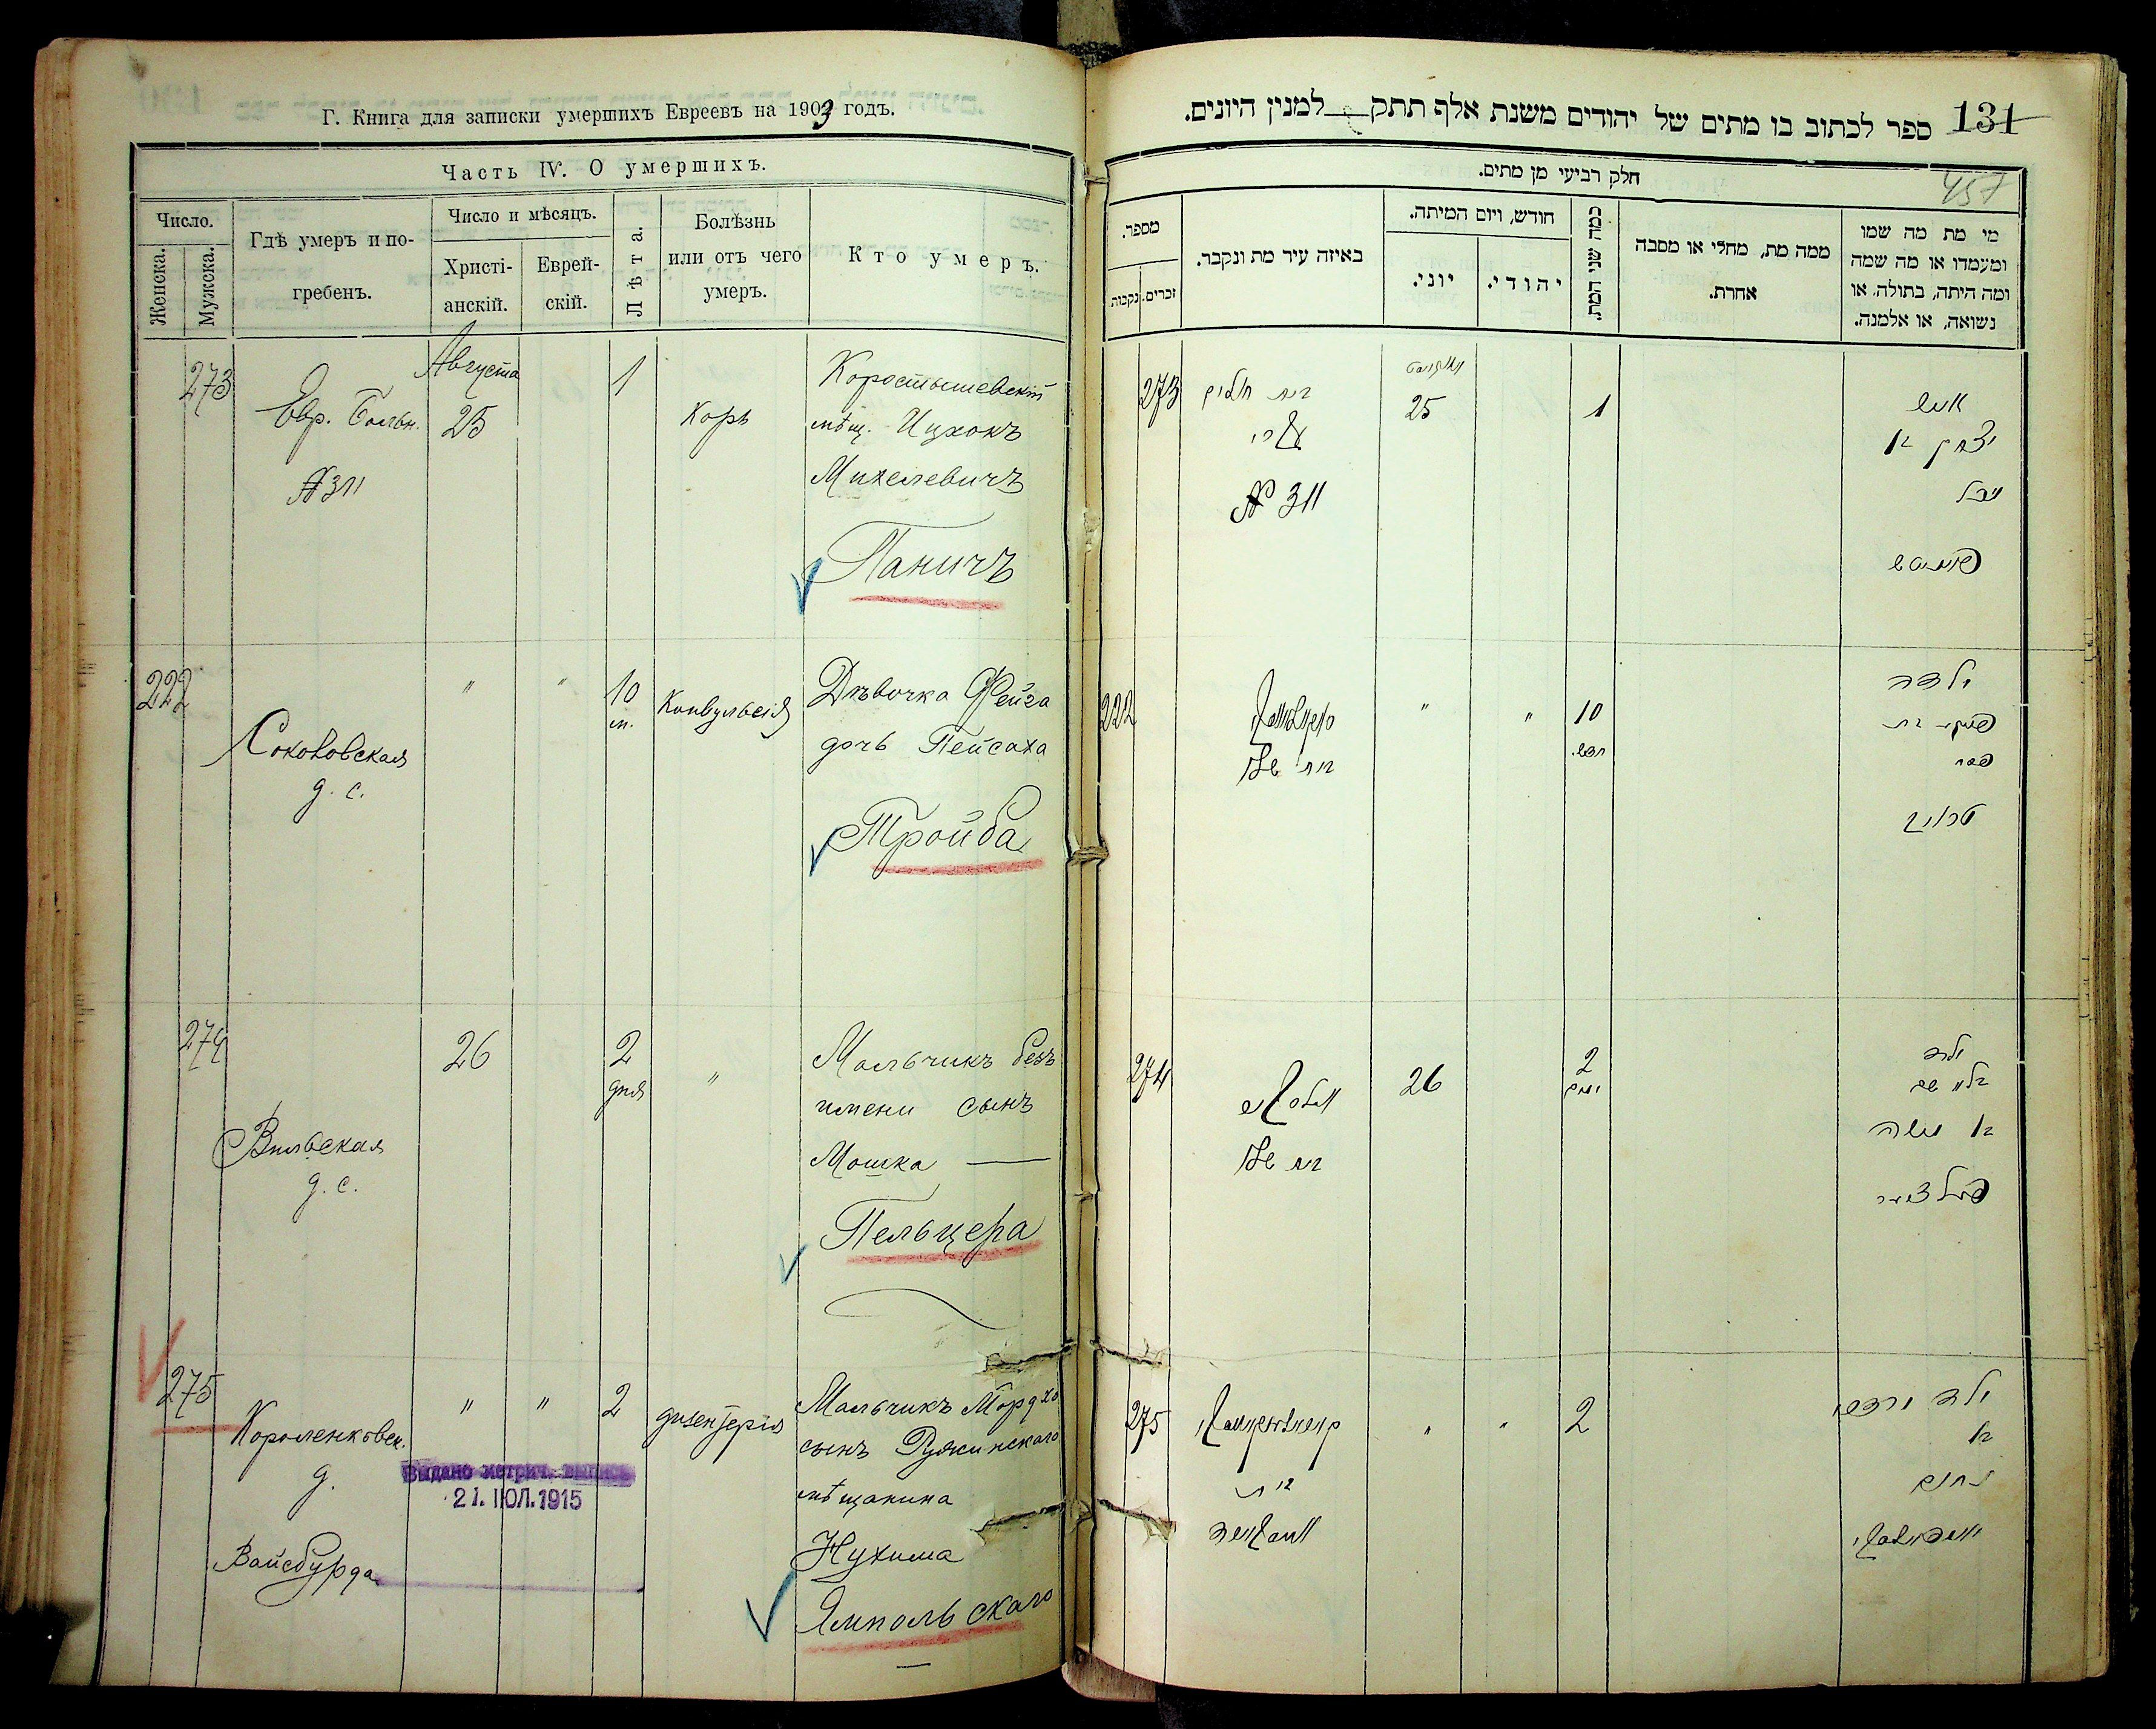 Г. Книга для записки умершихъ Евреевъ на 1903 годъ.
Часть IV. О умершихъ.
Число.
Женска.
Мужска.
Гдѣ умеръ и по-
гребенъ.
Число и мѣсяцъ.
Христі-
анскій.
Еврей-
скій.
Лѣта.
Болѣзнь
или отъ чего
умеръ.
Кто умеръ.
273
Евр. Больн.
№ 311
Августа
25
1
Корь
Коростышевскій
мѣщ. Ицхокъ
Михелевичъ
Паничъ
222
Соколовская
д. с.
" "
10
м.
Конвульсія
Дѣвочка Фейга
дочь Пейсаха
Тройба
274
Вильская
д. с.
26
2
дня
"
Мальчикъ безъ
имени сынъ
Мошка
Пельцера
275
д.
Вайсбурда
" "
2
дизентерія
Мальчикъ Мордхо
сынъ Ружинскаго
мѣщанина
Нухима
Ямпольскаго
Выдано метрич. выпись
21. ІЮЛ. 1915
131
ספר לכתוב בו מתים של יהודים משנת אלף תתק למנין היונים.
457
חלק רביעי מן מתים.
מספר.
זכרים.
נקבות
באיזה עיר מת ונקבר.
חודש, ויום המיתה.
יוני.
יהודי.
כמה שני המת.
ממה מת, מחלי או מסבה
אחרת.
מי מת מה שמו
ומעמדו או מה שמה
ומה היתה, בתולה, או
נשואה, או אלמנה.
273
בית חולים
№ 311
25
1
איש
יצחק בן
מיכל
222
" "
10
חדש
ילדה
פייגא בת
פסח
טרויב
274
26
2
ימים
ילד
בלי שם
בן משה
פעלצער
275
בית
" "
2
ילד מרדכי
בן
נחום